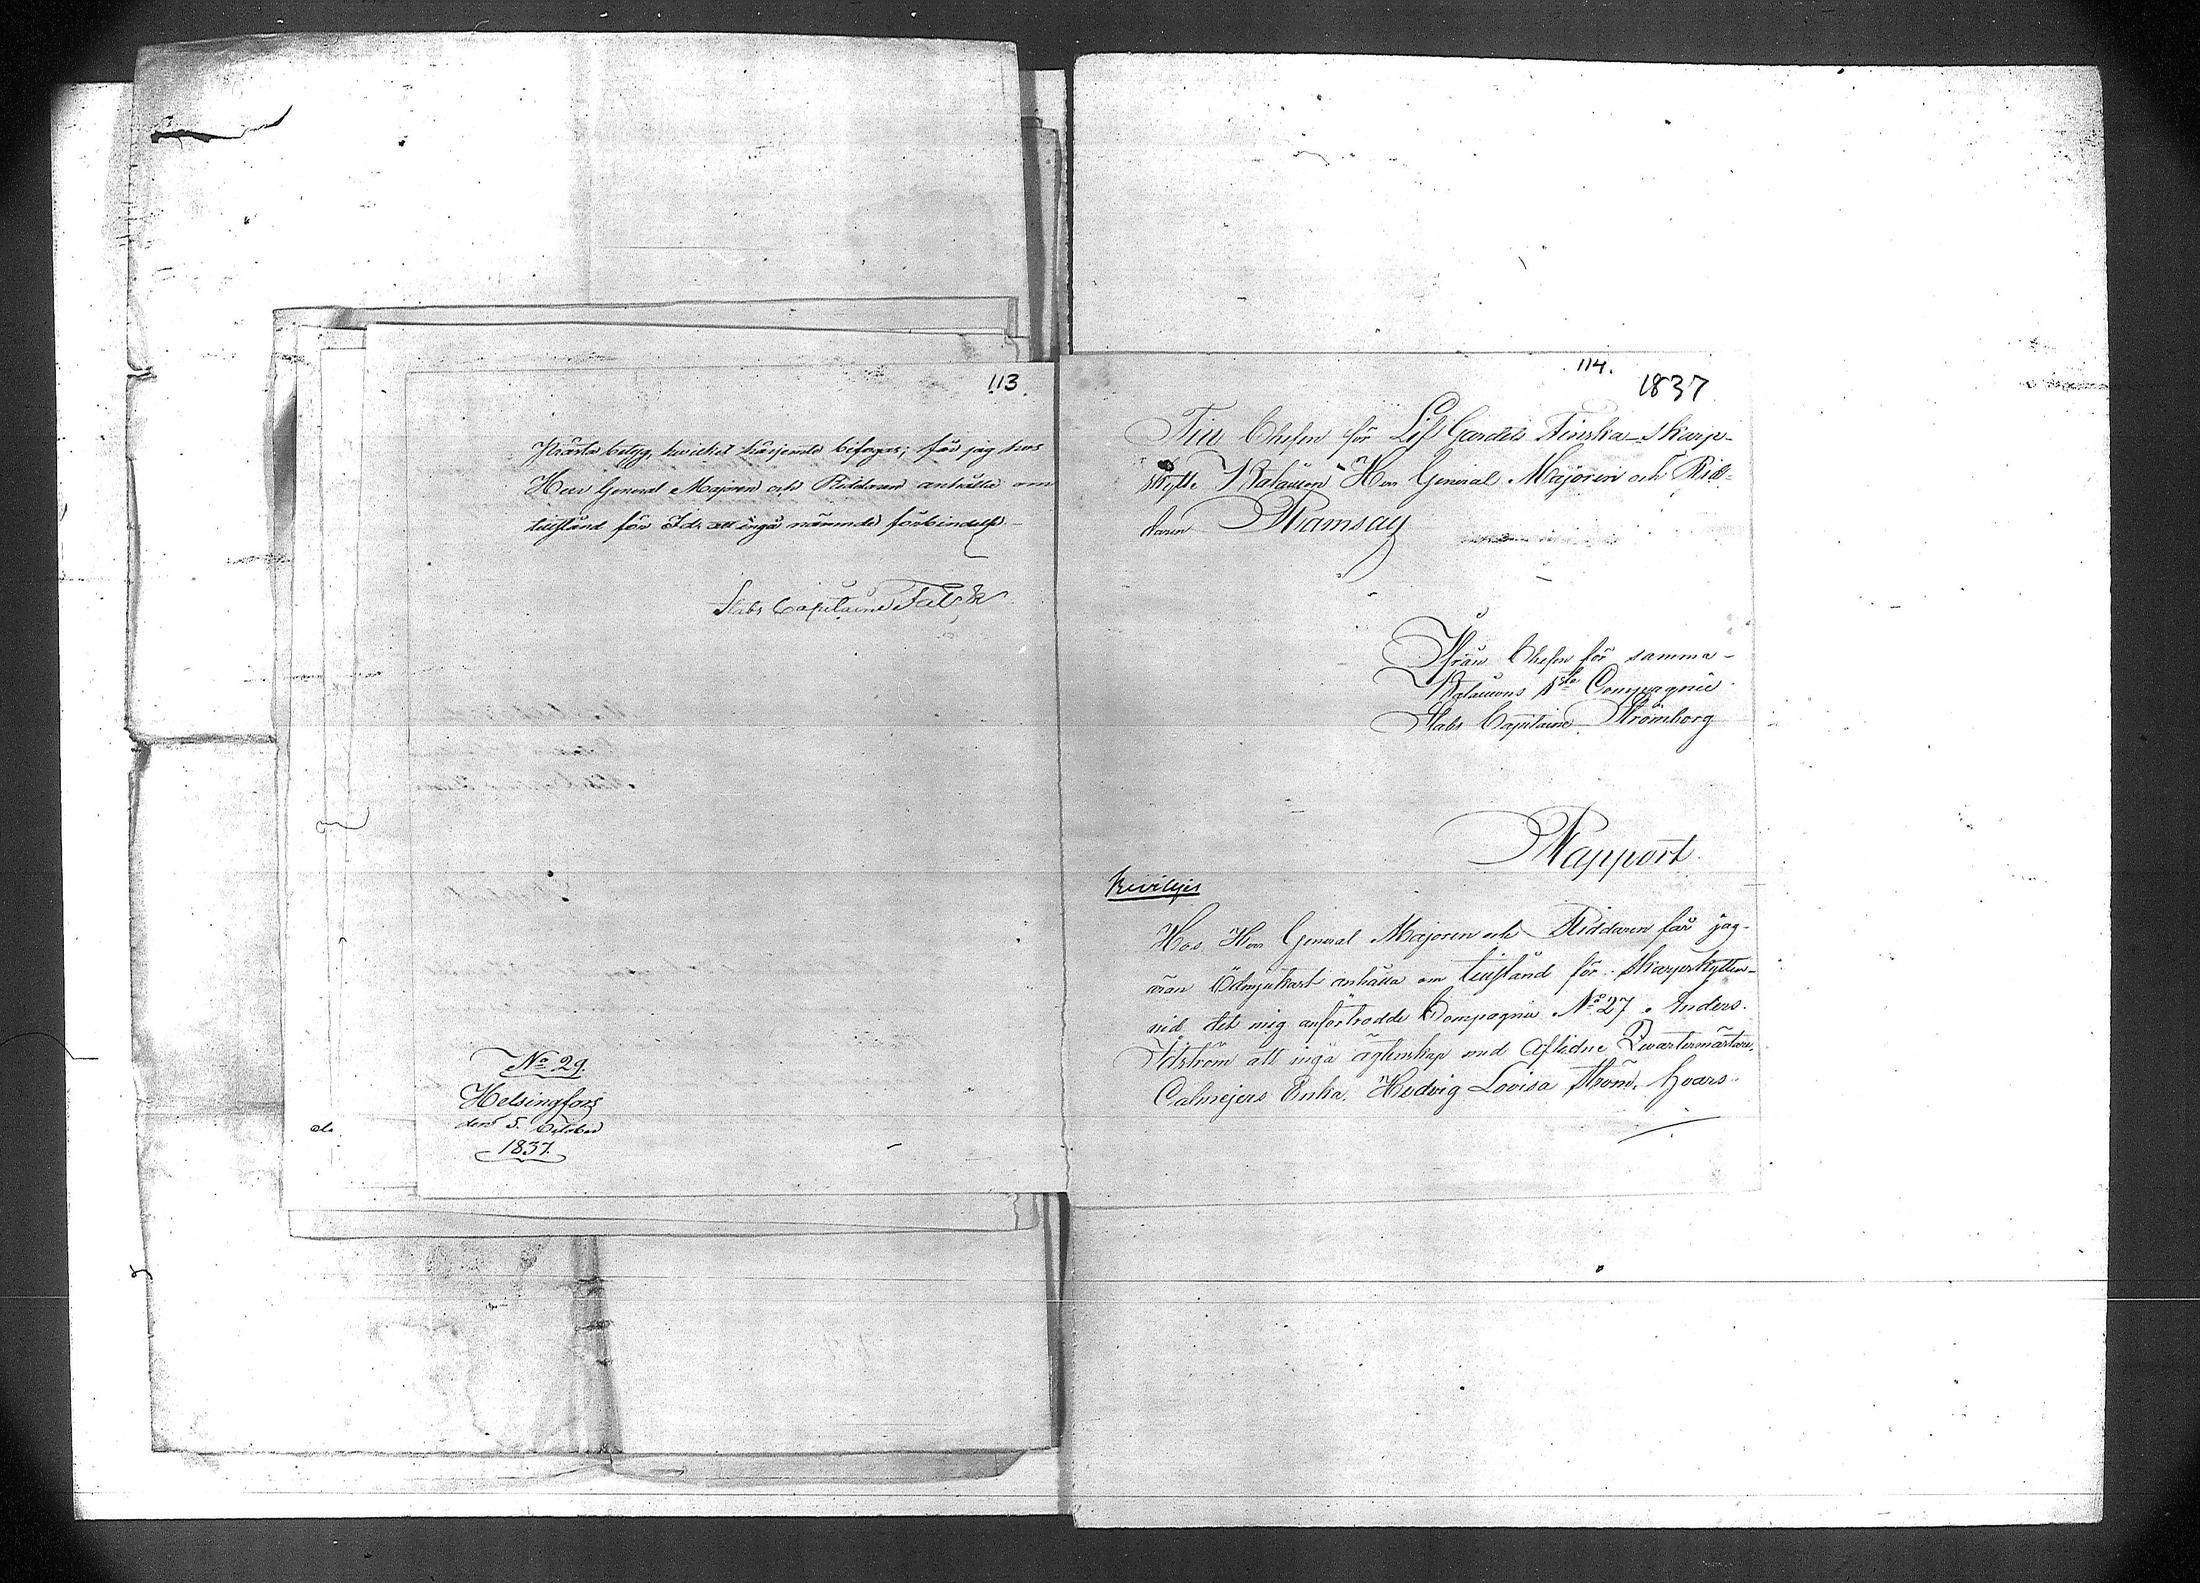 113
Prästa betyg, hvilket härjemte bifogas; får jag hos
Herr General Majoren och Riddaren anhålla om
tillstånd för Id: att ingå nämnde förbindelse.
Stabs Capitaine Falck
No 29.
Helsingfors
den 5. October
1837.
114.
1837
Till Chefen för Lif Gardets Finska Skarp-
skytte Bataillon Herr General Majoren och Rid-
daren Ramsay
Ifrån Chefen för samma
Bataillons 1sta Compagnie
Stabs Capitaine Strömborg
Rapport.
Beviljes
Hos Herr General Majoren och Riddaren får jag
äran Ödmjukast anhålla om tillstånd för Skarpskytten
vid det mig anförtrodde Compagnie No 27 Anders
Idström att ingå ägtenskap med Aflidne Qvartermästare
Calmejers Enka, Hedvig Lovisa Ström, hvars